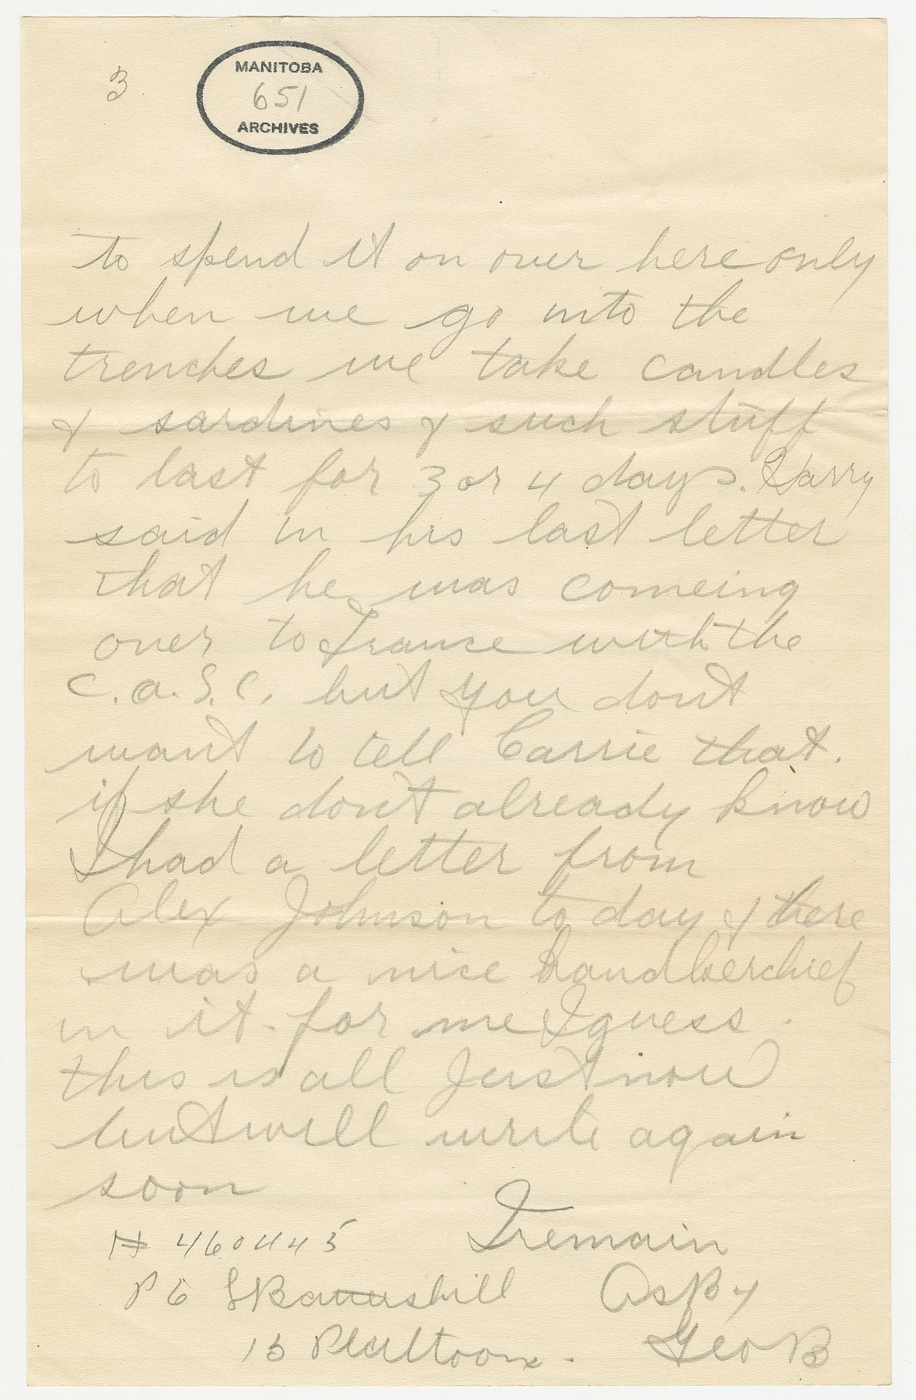 3
MANITOBA
651
ARCHIVES
to spend it on over here only
when we go into the
trenches we take candles
& sardines & such stuff
to last for 3 or 4 days. Harry
said in his last letter
that he was comeing
over to France with the
C.A.S.C. but you dont
want to tell Carrie that.
if she don't already know
I had a letter from
Alex Johnson to day & there
was a nice handkerchief
in it for me I guess.
this is all just now
but will write again
soon
I remain
As By
Geo B
# 460445
13 Plattoon.